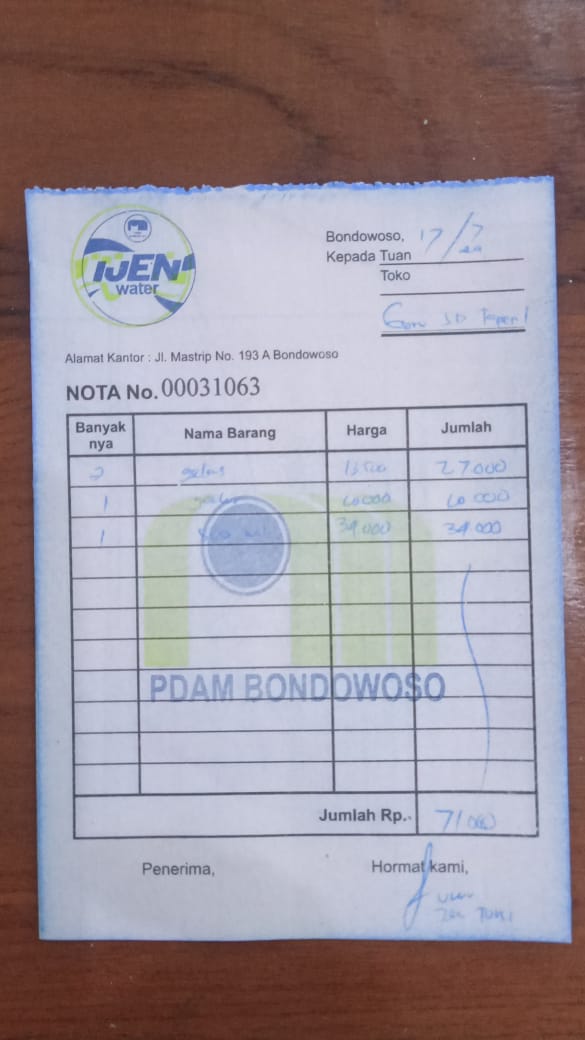 IJEN
water
Bondowoso, 17/7
Kepada Tuan
Toko
SD
Alamat Kantor : Jl. Mastrip No. 193 A Bondowoso
NOTA No. 00031063
Banyak nya Nama Barang Harga Jumlah
2 gelas 13500 27.000
1 10000 10 000
1 34.000 34.000
PDAM BONDOWOSO
Jumlah Rp. 71000
Penerima, Hormat kami,